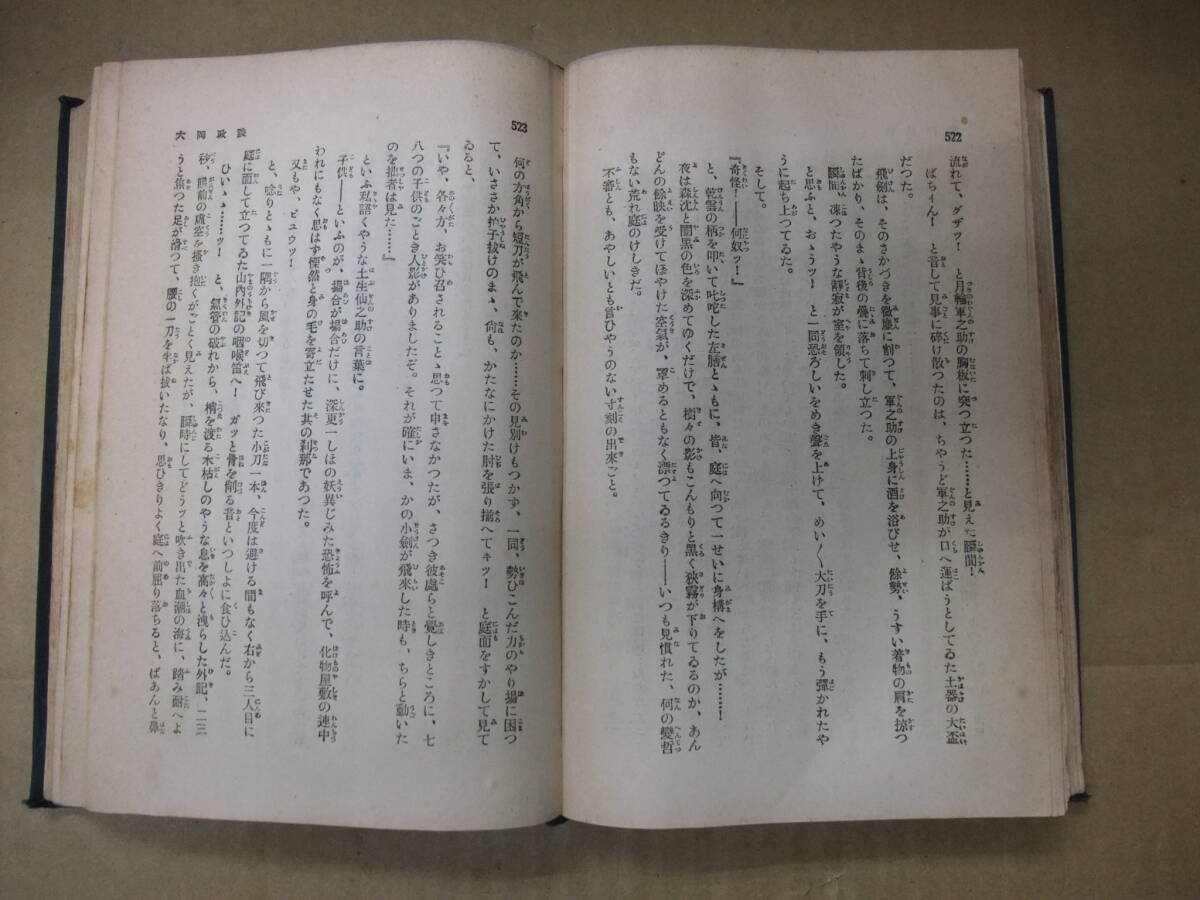 522
流れて、グザッ！　と月輪軍之助の胸板に突つ立つた……と見えた瞬間！
ぱちイん！　と音して見事に砕け散つたのは、ちやうど軍之助が口へ運ばうとしてゐた土器の大盃
だつた。
飛剣は、そのさかづきを微塵に割つて、軍之助の上身に酒を浴びせ、餘勢、うすい着物の肩を掠つ
たばかり、そのまゝ背後の畳に落ちて刺し立つた。
瞬間、凍つたやうな靜寂が室を領した。
と思ふと、おゝうッ！　と一同恐ろしいをめき聲を上げて、めい〳〵大刀を手に、もう彈かれたや
うに起ち上つてゐた。
そして。
『奇怪！――何奴ッ！』
と、乾雲の柄を叩いて叱咤した左膳とゝもに、皆、庭へ向つて一せいに身構へをしたが………！
夜は森沈と闇黒の色を深めてゆくだけで、樹々の影もこんもりと黒く狹霧が下りてゐるのか、あん
どんの餘映を受けてほやけた空氣が、罩めるともなく漂つてゐるきり――いつも見慣れた、何の變哲
もない荒れ庭のけしきだ。
不審とも、あやしいとも言ひやうのない寸刻の出來ごと。
523
大岡政談
何の方角から短刀が飛んで來たのか……その見別けもつかず、一同、勢ひこんだ力のやり場に困つ
て、いさゝか拍子拔けのまゝ、尚も、かたなにかけた肘を張り揃へてキッ！　と庭面をすかして見て
ゐると、
『いや、各々方、お笑ひ召されることゝ思つて申さなかつたが、さつき彼處らと覺しきところに、七
八つの子供のごとき人影がありましたぞ。それが確にいま、かの小劍が飛來した時も、ちらと動いた
のを拙者は見た……』
といふ私語くやうな土生仙之助の言葉に。
子供――といふのが、場合が場合だけに、深更一しほの妖異じみた恐怖を呼んで、化物屋敷の連中
われにもなく思はず慄然と身の毛を寄立たせた其の刹那であつた。
又もや、ビュウッ！
と、唸りとゝもに一隅から風を切つて飛び來つた小刀一本、今度は避ける間もなく右から三人目に
庭に面して立つてゐた山內外記の咽喉笛へ！　ガッと骨を削る音といつしよに食ひ込んだ。
ひいゝ……ッ！　と、氣管の破れから、梢を渡る木枯しのやうな息を高々と洩らした外記、二三
秒、眼前の虛空を搔き抱くがごとく見えたが、瞬時にしてどうッと吹き出た血潮の海に、踏み耐へよ
うと焦つた足が滑つて、腰の一刀を半ば拔いたなり、思ひきりよく庭へ前屈り落ちると、ぱあんと鼻